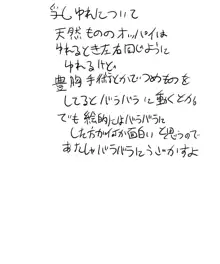 天然もののオッパイは
ゆれるとき左右同じように
ゆれるけど。
豊胸手術とかでつめものを
してるとバラバラに動くとか。
でも絵的にはバラバラに
した方が何か面白いと思うので
あたしゃバラバラにうごかすよ